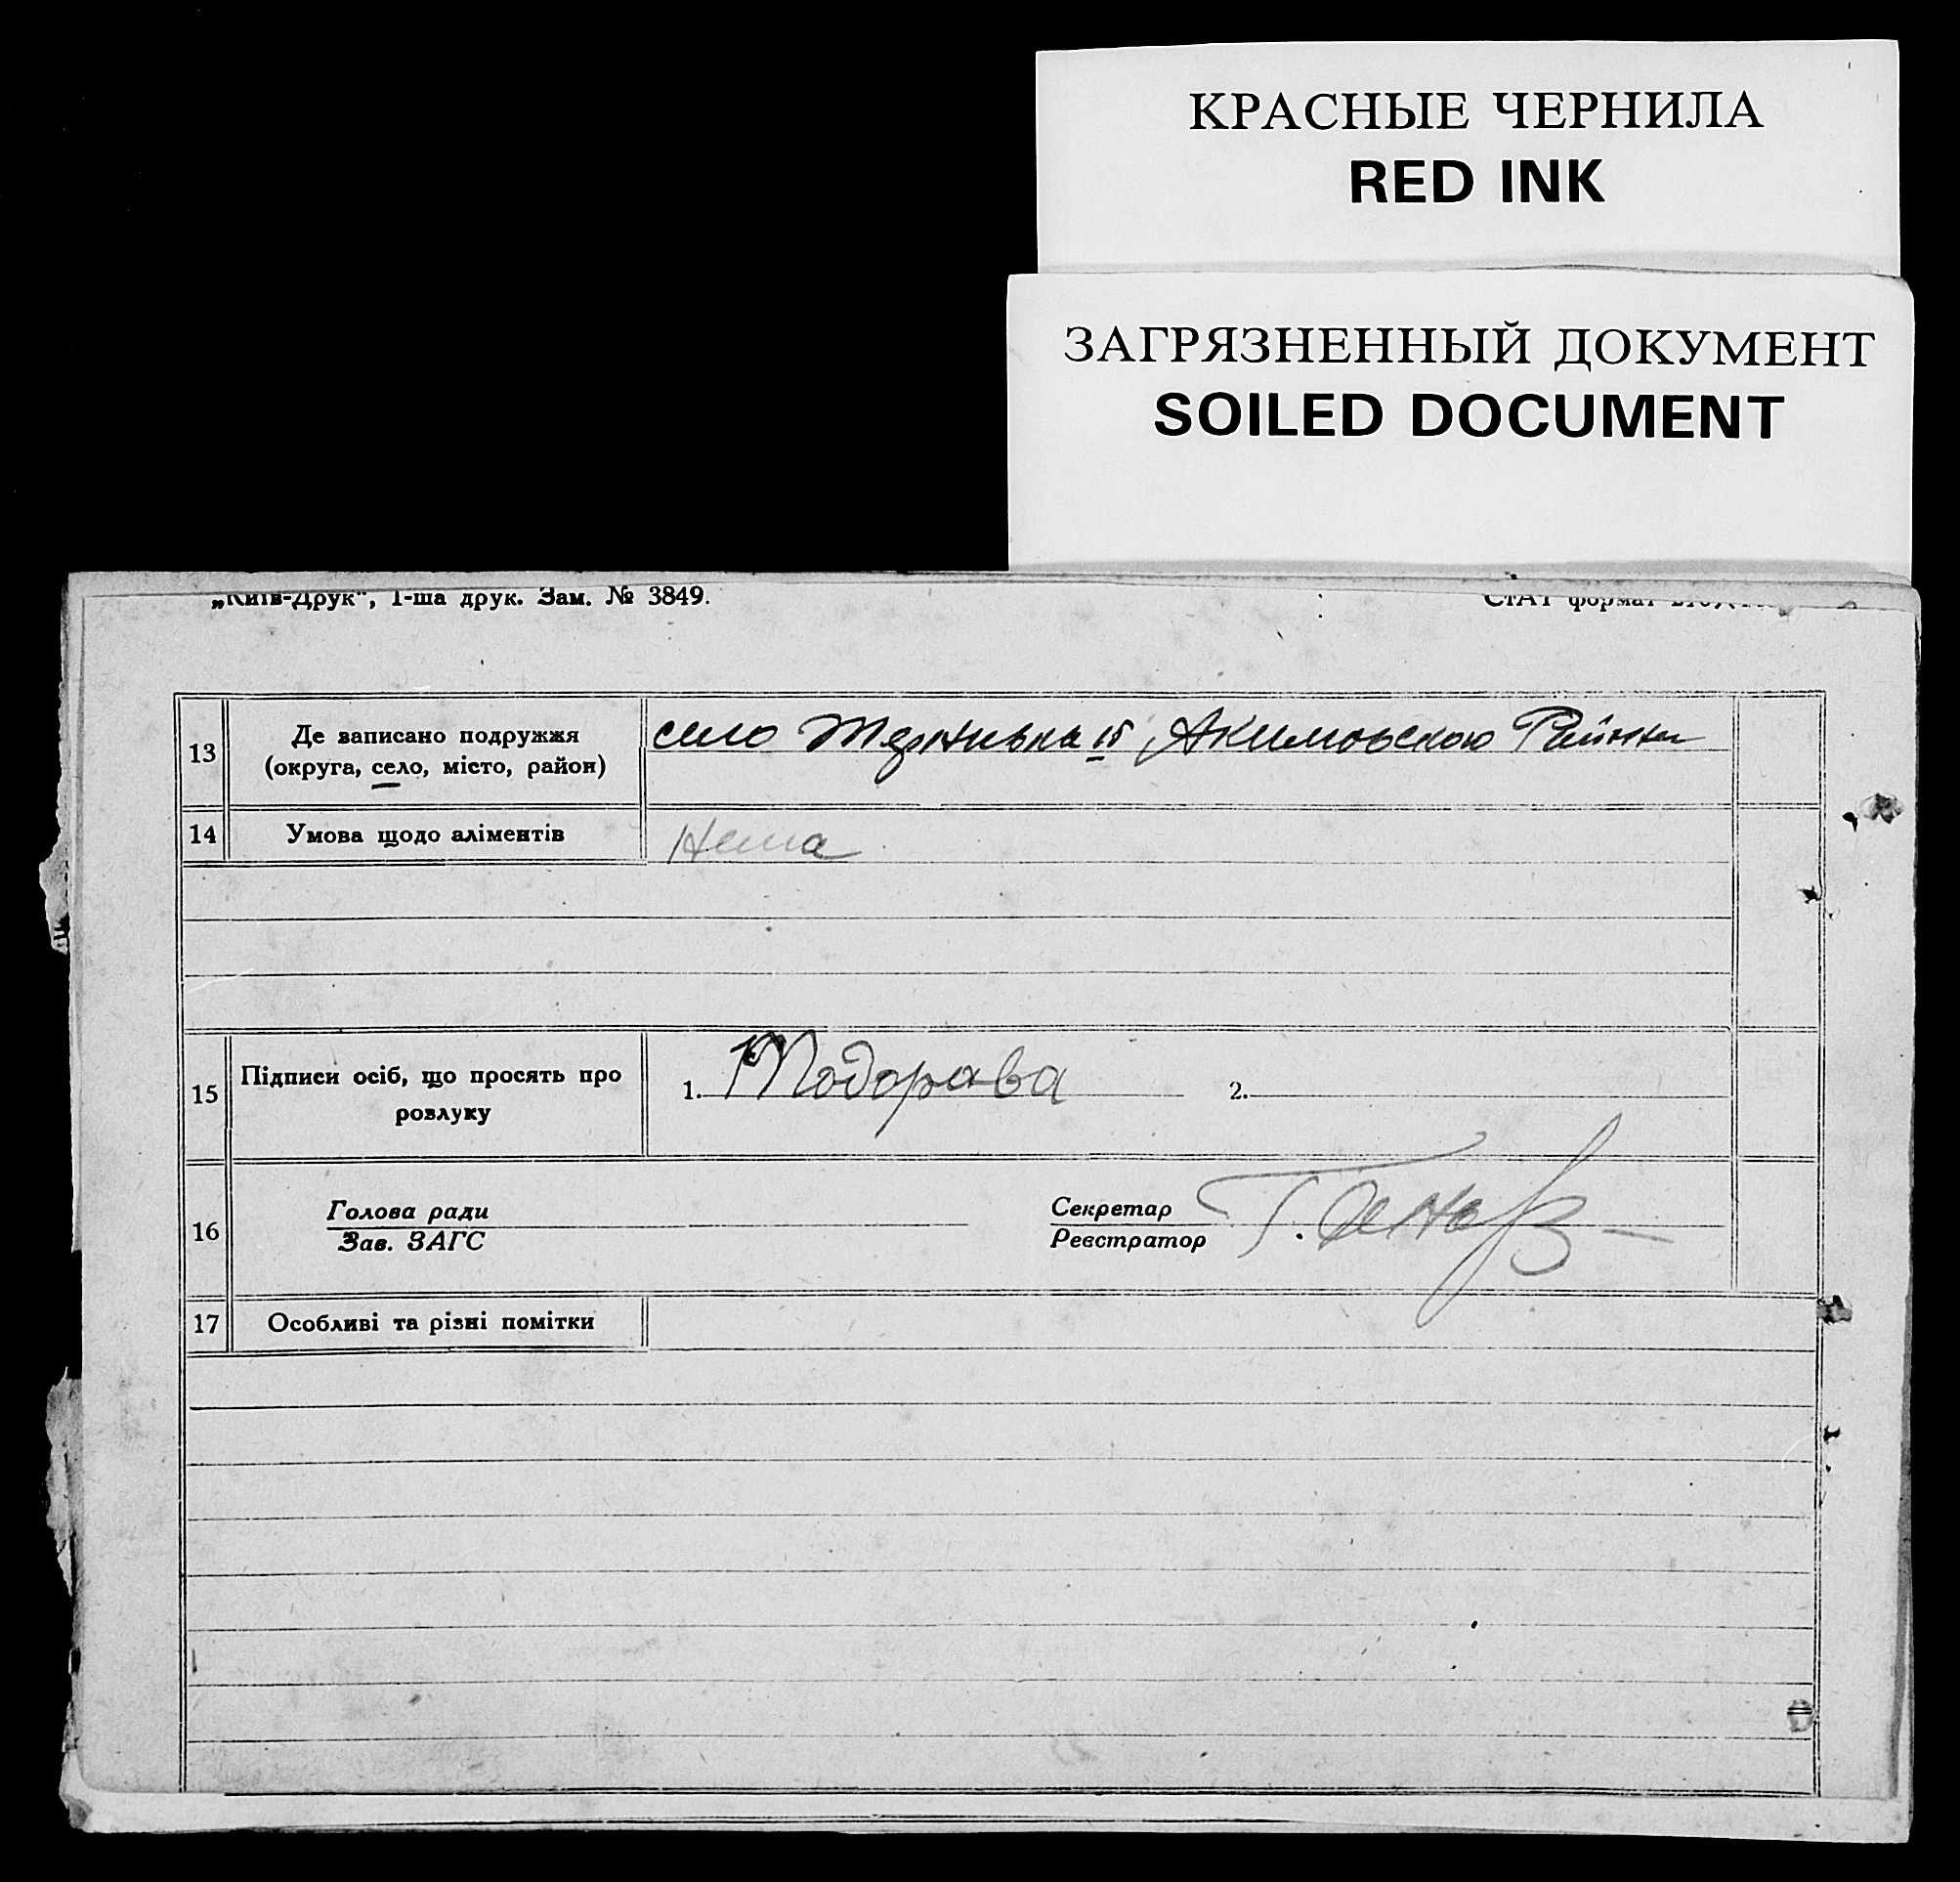 КРАСНЫЕ ЧЕРНИЛА
RED INK
ЗАГРЯЗНЕННЫЙ ДОКУМЕНТ
SOILED DOCUMENT
„Київ-Друк", 1-ша друк. Зам. № 3849.
СтАТ формат
13 Де записано подружжя (округа, село, місто, район)
село Акимовского
14 Умова щодо аліментів
Нема
15 Підписи осіб, що просять про розлуку
1. Тодорава 2.
16 Голова ради
Зав. ЗАГС
Секретар
Реєстратор
17 Особливі та різні помітки